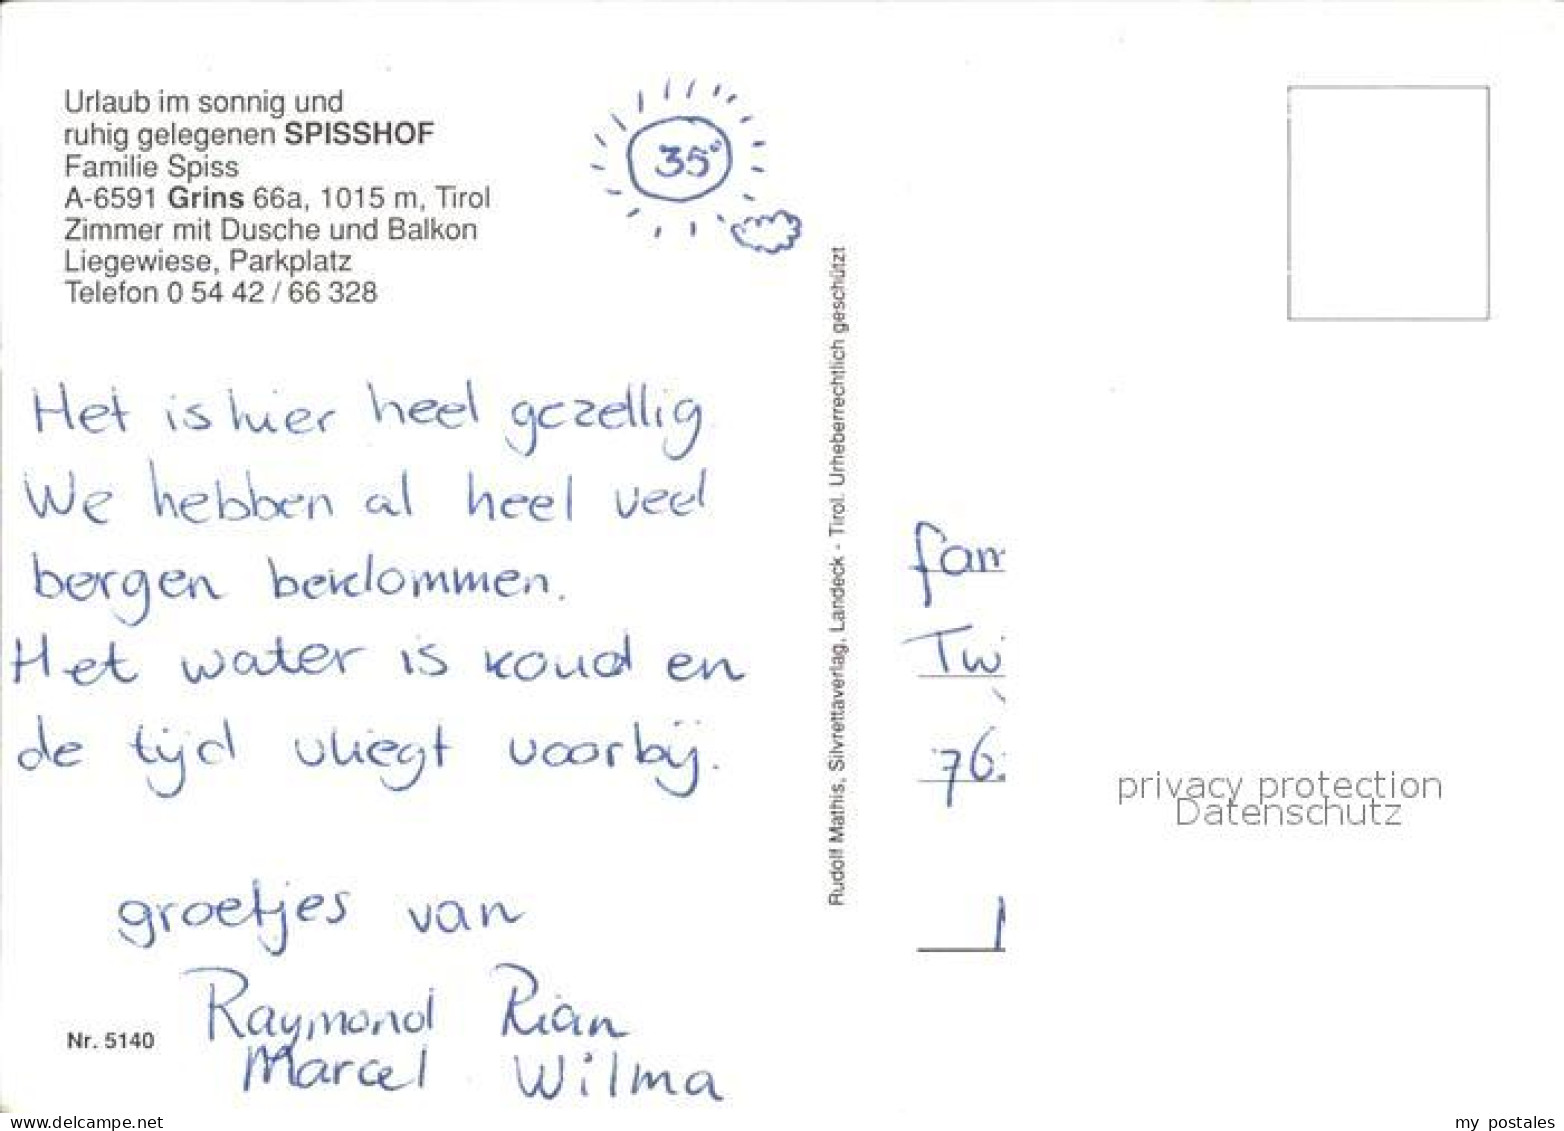 Urlaub im sonnig und
ruhig gelegenen SPISSHOF
Familie Spiss
A-6591 Grins 66a, 1015 m, Tirol
Zimmer mit Dusche und Balkon
Liegewiese, Parkplatz
Telefon 0 54 42 / 66 328
35°
Het is hier heel gezellig
We hebben al heel veel
bergen beklommen.
Het water is koud en
de tijd vliegt voorbij.
groetjes van
Raymond Rian
Marcel Wilma
Nr. 5140
Rudolf Mathis, Silvrettaverlag, Landeck - Tirol. Urheberrechtlich geschützt
fam
Tw
76
privacy protection
Datenschutz
www.delcampe.net
my postales